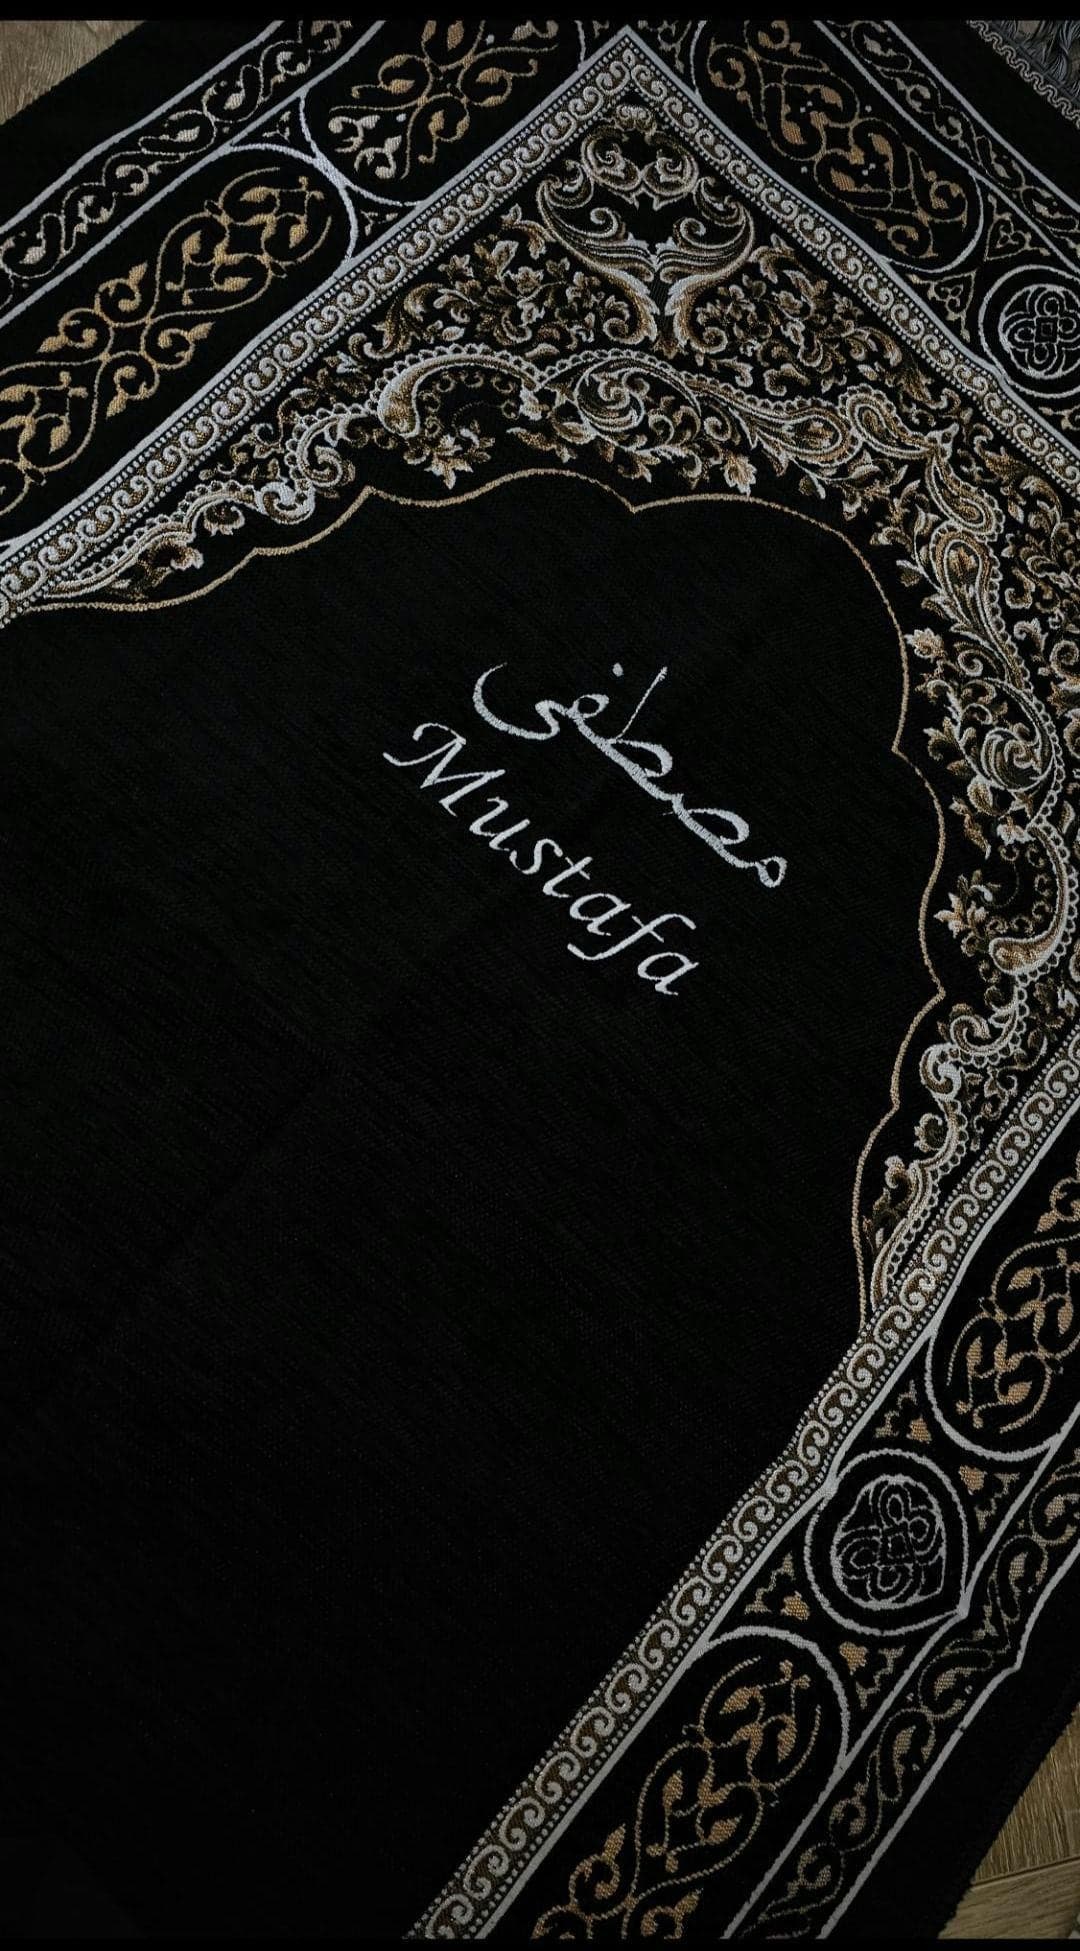 مصطفى
Mustafa